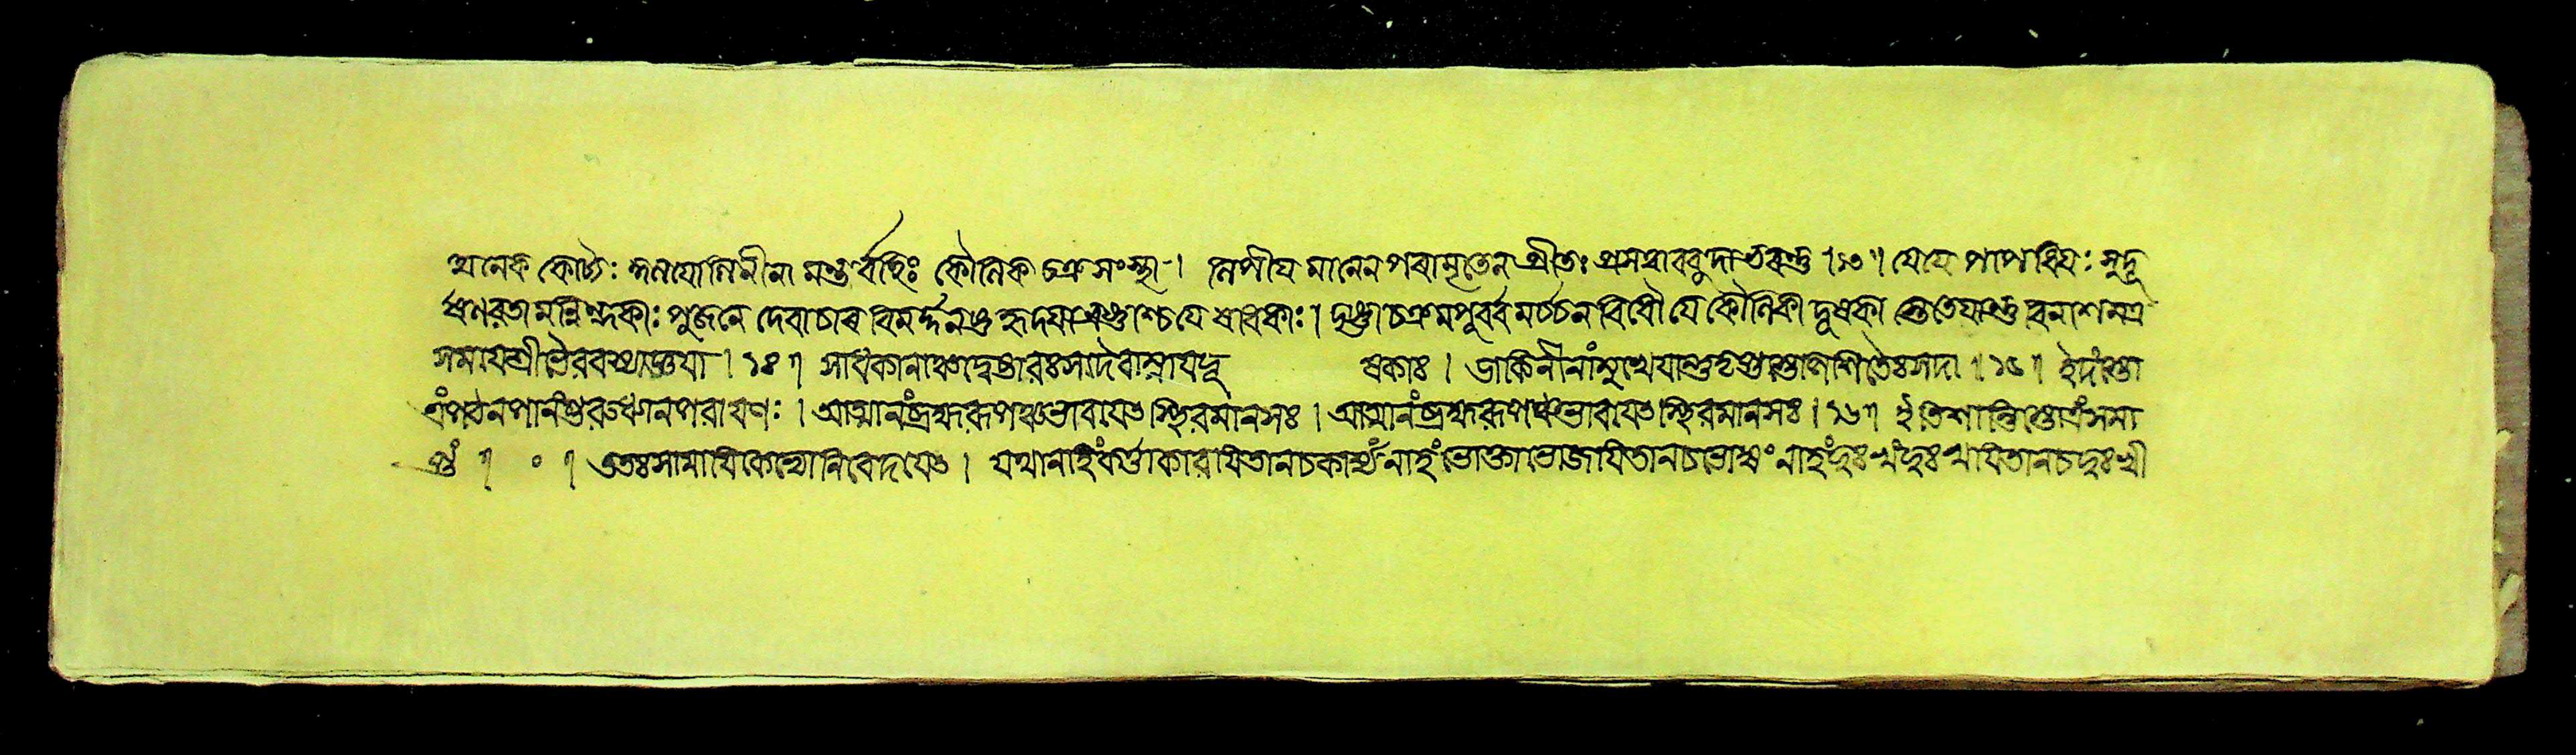 অনেক কোট্যঃ কুলযোগিনীনা মন্তর্ব্বহিঃ কৌলিক চক্র সংস্থা । লপীয মানেন পরামৃতেন প্রীতাঃ প্রসন্না বরদা ভবন্তু ।১৩॥ যে যে পাপ ধিযঃ সুদূ
ষণরতা মন্নিন্দকাঃ পুজনে দেবাচার বিমর্দ্দন হৃদযা ভ্রষ্টাশ্চ যে ষাধকাঃ । দৃষ্ট্বা চক্রমপুর্ব্ব মর্চ্চন বিধৌ যে কৌলিকা দূষকা স্তেতে যান্তু বিনাশ মত্র
সমাযশ্রীভৈরবস্যাজ্ঞযা । ১৪ ॥ সাধকানাঞ্চ দ্বেষ্টারঃ সদৈবাম্নাযদূ ষকাঃ । ডাকিনীনাং মুখে যান্তু তৃপ্তাস্তা পিশিতৈঃ সদা । ১৫ ॥ ইদং স্তো
ত্রং পঠন পানং গুরুধ্যানপরাযণঃ । আত্মানং ব্রহ্মরূপঞ্চ ভাবযেৎ স্থিরমানসঃ । আত্মানং ব্রহ্মরূপঞ্চ ভাবযেৎ স্থিরমানসঃ । ১৬ ॥ ইতি শান্তিস্তোত্রং সমা
প্তং ॥ ০ ॥ ততঃ সামাযিকেভ্যো নিবেদযেৎ । যথা নাহং কর্ত্তা কারাযিতা ন চ কার্য্যং নাহং ভোক্তা ভোজাযিতা ন চ ভোজ্যং নাহং দুঃখং দুঃখাযিতা ন চ দুঃখী